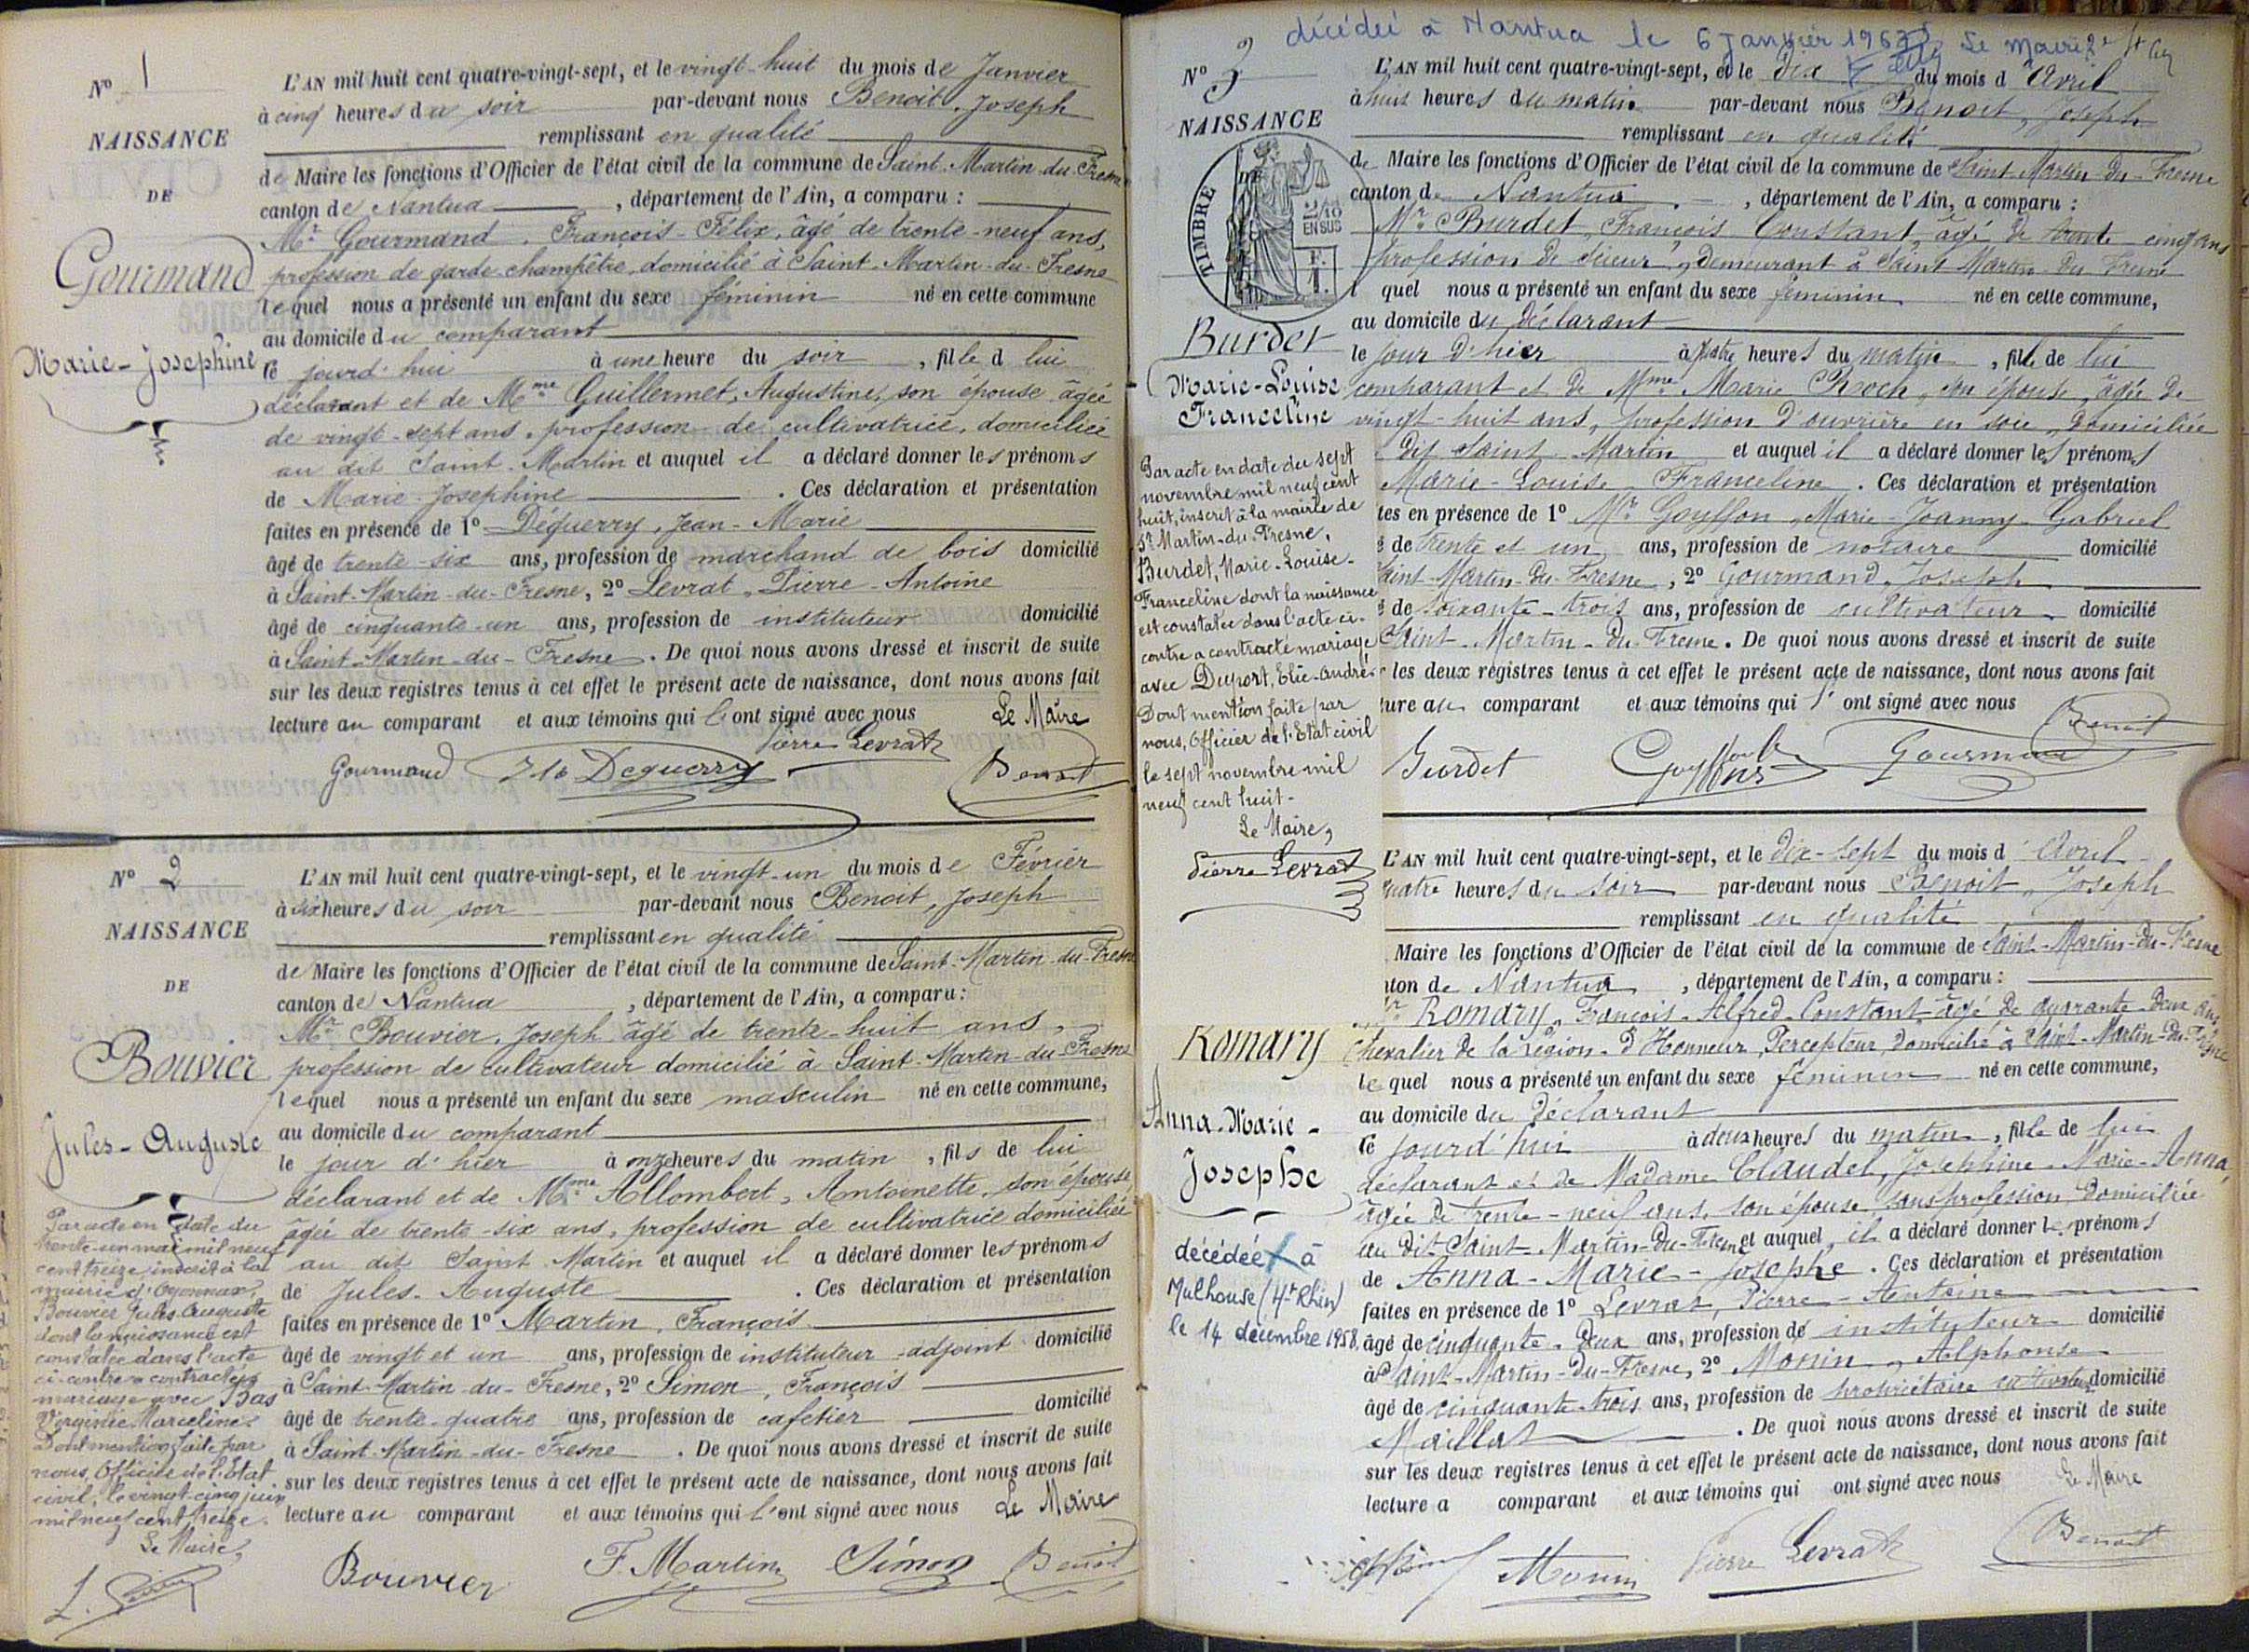 Nº 1
NAISSANCE
DE
Gourmand
Marie-Josephine
L'AN mil huit cent quatre-vingt-sept, et le vingt-huit du mois de Janvier
à cinq heures du soir par-devant nous Benoit, Joseph
remplissant en qualité
de Maire les fonctions d'Officier de l'état civil de la commune de Saint-Martin-du-Fresne
canton de Nantua, département de l'Ain, a comparu :
Mr Gourmand, François-Félix, âgé de trente-neuf ans,
profession de garde-champêtre, domicilié à Saint-Martin-du-Fresne
lequel nous a présenté un enfant du sexe féminin né en cette commune
au domicile du comparant
ce jourd'hui à une heure du soir, fille d lui
déclarant et de Mme Guillermet, Augustine, son épouse âgée
de vingt-sept ans, profession de cultivatrice, domiciliée
au dit Saint-Martin et auquel il a déclaré donner les prénoms
de Marie-Josephine. Ces déclaration et présentation
faites en présence de 1º Déguerry, Jean-Marie
âgé de trente-six ans, profession de marchand de bois domicilié
à Saint-Martin-du-Fresne, 2º Levrat, Pierre-Antoine
âgé de cinquante-un ans, profession de instituteur domicilié
à Saint-Martin-du-Fresne. De quoi nous avons dressé et inscrit de suite
sur les deux registres tenus à cet effet le présent acte de naissance, dont nous avons fait
lecture au comparant et aux témoins qui l'ont signé avec nous Le Maire
Pierre Levrat
Gourmand Deguerry Benoit
Nº 2
NAISSANCE
DE
Bouvier
Jules-Auguste
Par acte en date du
trente-un mai mil neuf
cent treize, inscrit à la
mairie d'Oyonnax,
Bouvier Jules Auguste
dont la naissance est
constatée dans l'acte
ci-contre a contracté
mariage avec Bas
Virginie Marceline.
Dont mention faite par
nous, Officier de l'Etat
civil, le vingt-cinq juin
mil neuf cent treize.
Le Maire,
L'AN mil huit cent quatre-vingt-sept, et le vingt-un du mois de Février
à six heures du soir par-devant nous Benoit, Joseph
remplissant en qualité
de Maire les fonctions d'Officier de l'état civil de la commune de Saint-Martin-du-Fresne
canton de Nantua, département de l'Ain, a comparu :
Mr Bouvier, Joseph âgé de trente-huit ans,
profession de cultivateur domicilié à Saint-Martin-du-Fresne
lequel nous a présenté un enfant du sexe masculin né en cette commune,
au domicile du comparant
le jour d'hier à onze heures du matin, fils de lui
déclarant et de Mme Allombert, Antoinette, son épouse
âgée de trente-six ans, profession de cultivatrice domiciliée
au dit Saint Martin et auquel il a déclaré donner les prénoms
de Jules-Auguste. Ces déclaration et présentation
faites en présence de 1º Martin, François
âgé de vingt et un ans, profession de instituteur-adjoint domicilié
à Saint-Martin-du-Fresne, 2º Simon, François
âgé de trente-quatre ans, profession de cafetier domicilié
à Saint-Martin-du-Fresne. De quoi nous avons dressé et inscrit de suite
sur les deux registres tenus à cet effet le présent acte de naissance, dont nous avons fait
lecture au comparant et aux témoins qui l'ont signé avec nous Le Maire
Bouvier F. Martin Simon Benoit
décédée à Nantua le 6 janvier 196 Le Maire
Nº 3
NAISSANCE
TIMBRE
2/10
EN SUS
Burdet
Marie-Louise
Franceline
Par acte en date du sept
novembre mil neuf cent
huit, inscrit à la mairie de
St Martin-du-Fresne,
Burdet, Marie-Louise-
Franceline dont la naissance
est constatée dans l'acte ci-
contre a contracté mariage
avec Duport, Elie-André
Dont mention faite par
nous, Officier de l'Etat civil
le sept novembre mil
neuf cent huit-
Le Maire,
Pierre Levrat
L'AN mil huit cent quatre-vingt-sept, et le dix du mois d'Avril
à huit heures du matin par-devant nous Benoit, Joseph
remplissant en qualité
de Maire les fonctions d'Officier de l'état civil de la commune de Saint-Martin-du-Fresne
canton de Nantua, département de l'Ain, a comparu :
Mr Burdet, François Constant, âgé de trente-cinq ans
profession de scieur, demeurant à Saint Martin-du-Fresne
l quel nous a présenté un enfant du sexe féminin né en cette commune,
au domicile du déclarant
le jour d'hier à quatre heures du matin, fille de lui
comparant et de Mme Marie Roch, son épouse, âgée de
vingt-huit ans, profession d'ouvrière en soie, domiciliée
dit Saint Martin et auquel il a déclaré donner les prénoms
Marie-Louise Franceline. Ces déclaration et présentation
tes en présence de 1º Mr Gouffon, Marie-Joanny-Gabriel
é de trente et un ans, profession de notaire domicilié
Saint-Martin-du-Fresne, 2º Gourmand, Joseph
é de soixante-trois ans, profession de cultivateur domicilié
Saint-Martin-du-Fresne. De quoi nous avons dressé et inscrit de suite
r les deux registres tenus à cet effet le présent acte de naissance, dont nous avons fait
ture au comparant et aux témoins qui l'ont signé avec nous
Benoit
Burdet Gourmand
Romary
Anna-Marie-
Josephe
décédée à
Mulhouse (Ht Rhin)
le 14 décembre 1958,
L'AN mil huit cent quatre-vingt-sept, et le dix-sept du mois d'Avril
quatre heures du soir par-devant nous Benoit, Joseph
remplissant en qualité
Maire les fonctions d'Officier de l'état civil de la commune de Saint-Martin-du-Fresne
nton de Nantua, département de l'Ain, a comparu :
Mr Romary, François-Alfred-Constant âgé de quarante-deux ans
Chevalier de la Légion-d'Honneur, Percepteur, domicilié à Saint-Martin-du-Fresne
lequel nous a présenté un enfant du sexe féminin né en cette commune,
au domicile du déclarant
ce jourd'hui à deux heures du matin, fille de lui
déclarant et de Madame Claudel, Josephine-Marie-Anna,
âgée de trente-neuf ans, son épouse, sans profession, domiciliée
au dit Saint-Martin-du-Fresne et auquel il a déclaré donner le prénoms
de Anna-Marie-Josephe. Ces déclaration et présentation
faites en présence de 1º Levrat, Pierre-Antoine
âgé de cinquante-deux ans, profession de instituteur domicilié
à Saint-Martin-du-Fresne, 2º Monin, Alphonse
âgé de cinquante-trois ans, profession de propriétaire cultivateur domicilié
Maillat. De quoi nous avons dressé et inscrit de suite
sur les deux registres tenus à cet effet le présent acte de naissance, dont nous avons fait
lecture a comparant et aux témoins qui ont signé avec nous Le Maire
Monin Pierre Levrat Benoit